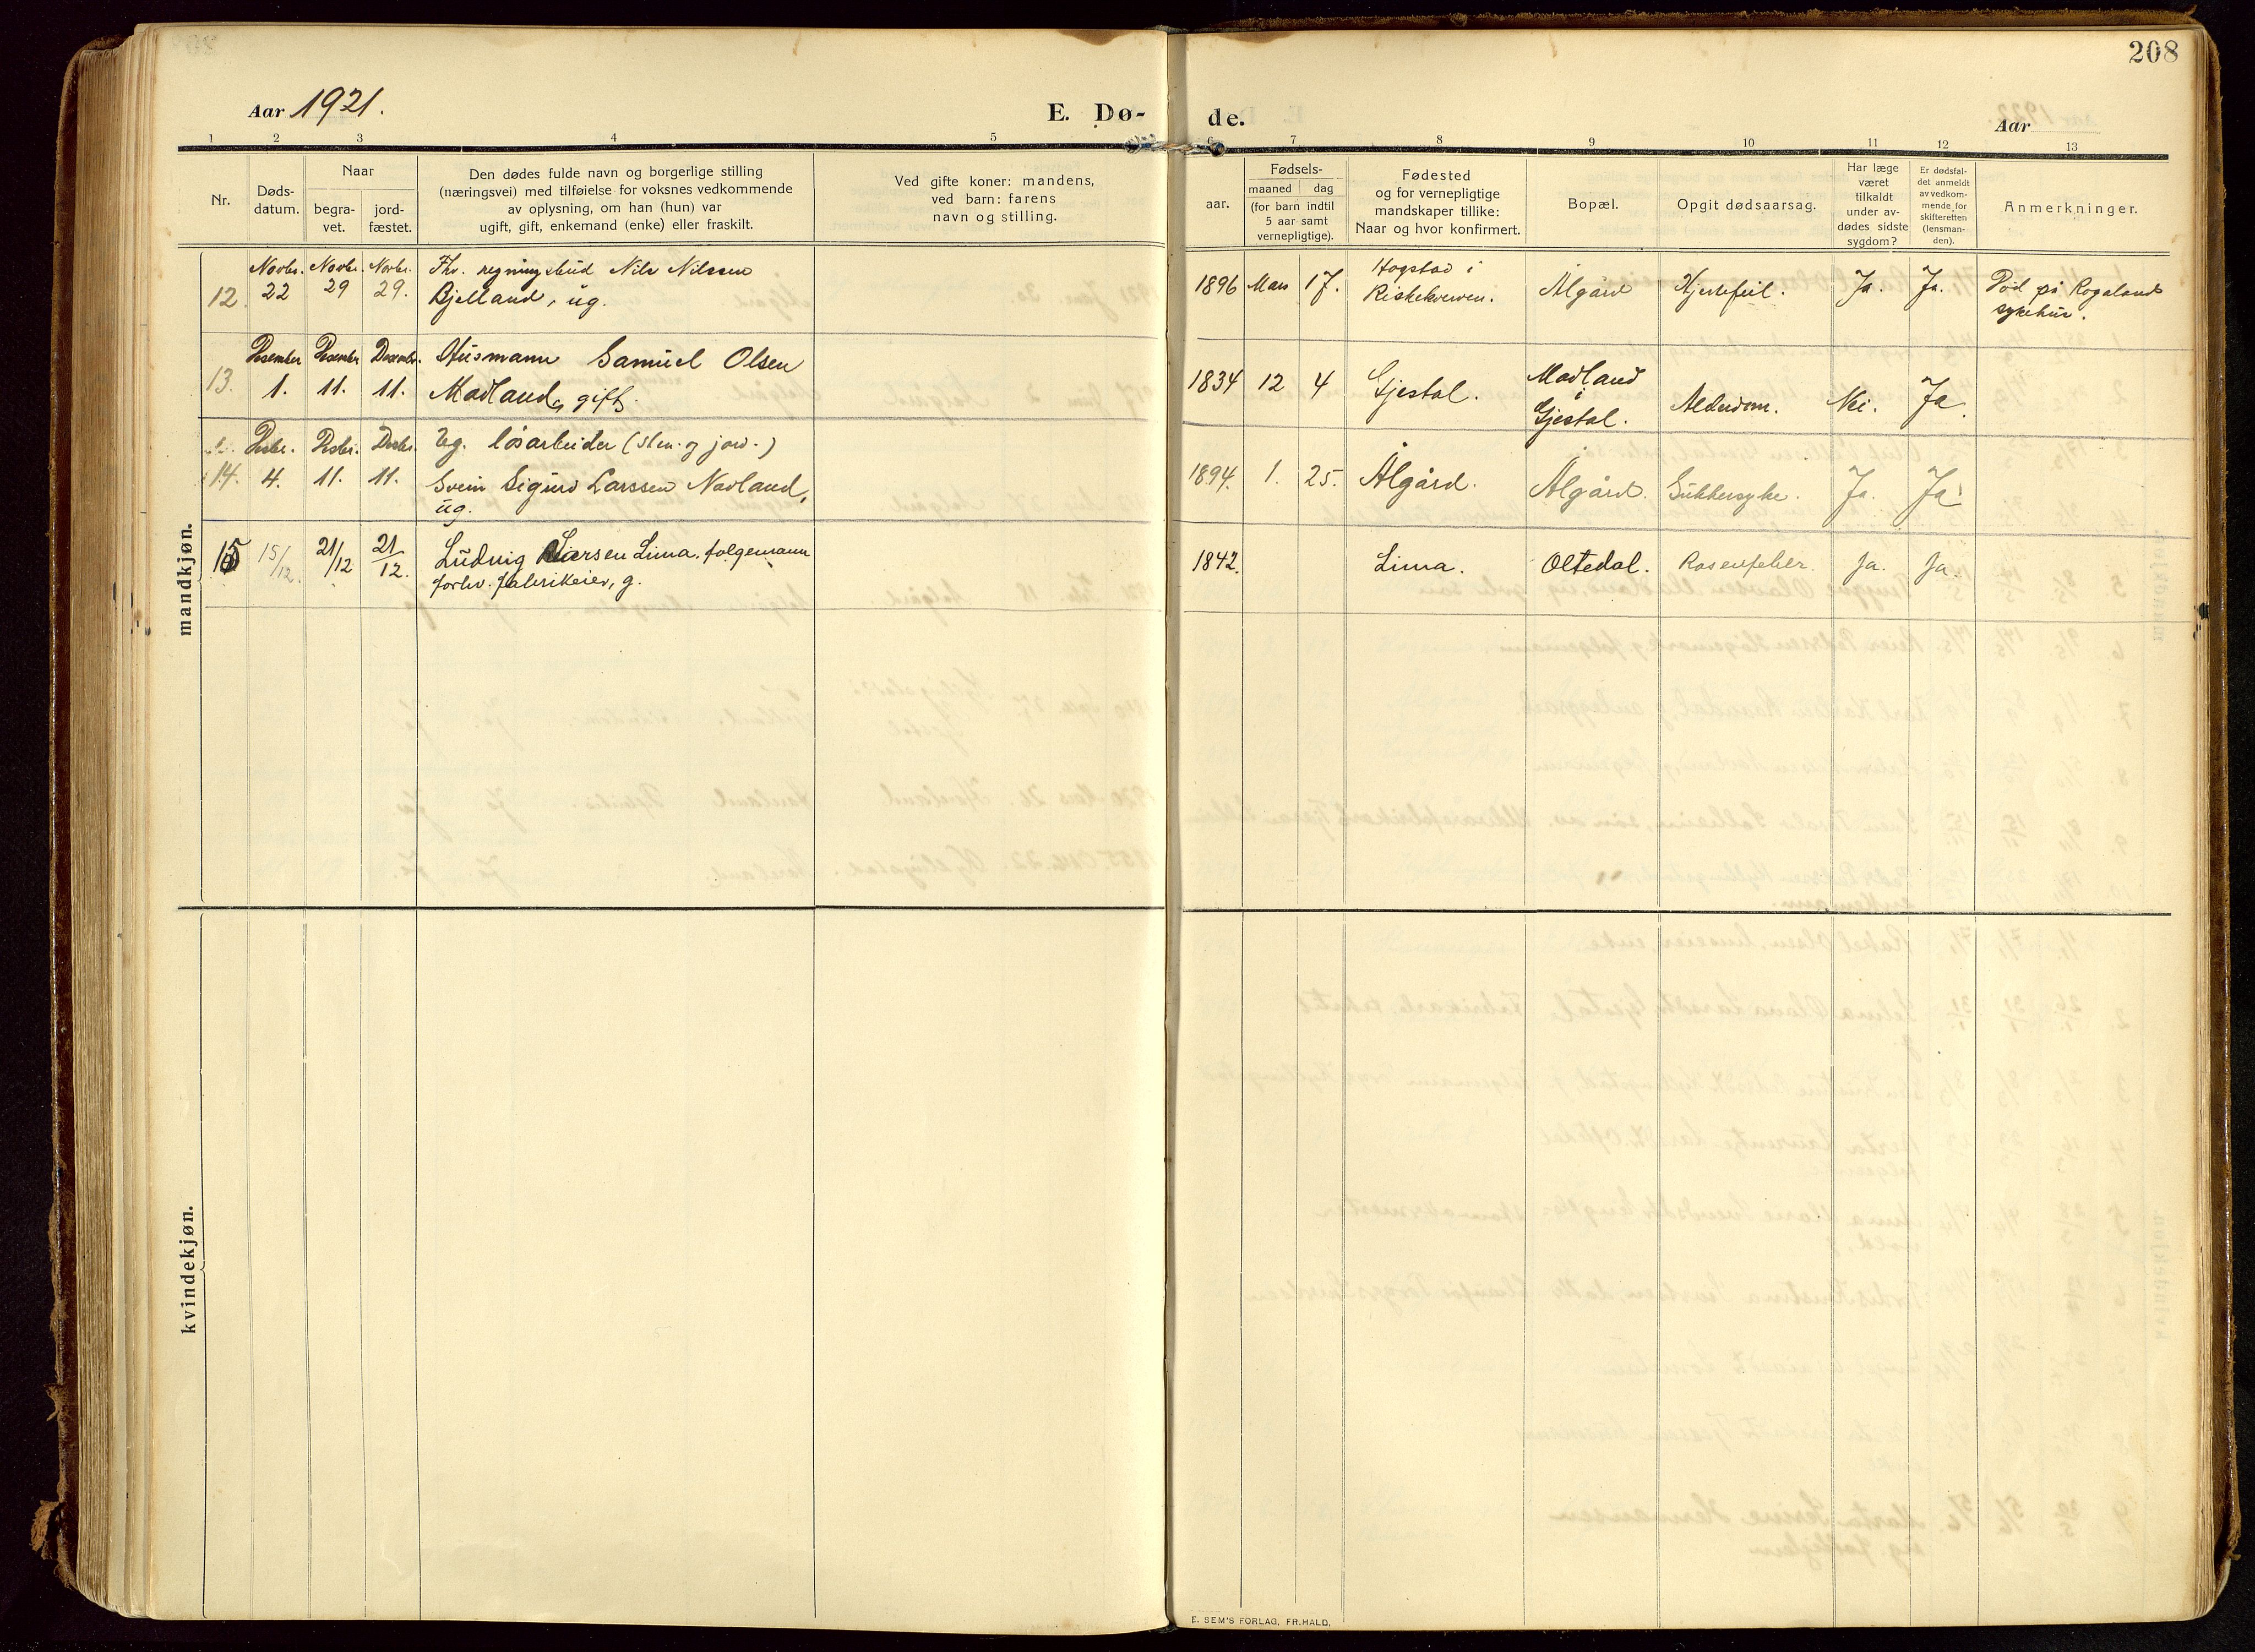 208
Aar 1921.
E. Dø-
de.
Aar
1 2 3 4 5 6 7 8 9 10 11 12 13
Nr.
Døds-
datum.
Naar
begra-
vet.
jord-
fæstet.
Den dødes fulde navn og borgerlige stilling
(næringsvei) med tilføielse for voksnes vedkommende
av oplysning, om han (hun) var
ugift, gift, enkemand (enke) eller fraskilt.
Ved gifte koner: mandens,
ved barn: farens
navn og stilling.
Fødsels-
aar.
maaned
dag
(for barn indtil
5 aar samt
vernepligtige).
Fødested
og for vernepligtige
mandskaper tillike:
Naar og hvor konfirmert.
Bopæl.
Opgit dødsaarsag.
Har læge
været
tilkaldt
under av-
dødes sidste
sygdom?
Er dødsfal-
det anmeldt
av vedkom-
mende for
skifteretten
(lensman-
den).
Anmerkninger.
mandkjøn.
12.
Novbr.
22
Novbr.
29
Novbr.
29.
Fhv. regningsbud Nils Nilssen
Bjelland, ug.
1896
Mars
17.
Hogstad i
Riskekverven.
Ålgård
Hjertefeil.
Ja.
Ja.
Død på Rogaland
sykehus.
13.
Desember
1.
Desember
11.
Desembr.
11.
Husmann Samuel Olsen
Madland, gift.
1834
12
4
Gjestal.
Madland
i
Gjestal.
Alderdom.
Nei.
Ja.
14.
Desbr.
4.
Desbr.
11.
Desbr.
11.
Ug. løsarbeider (sten- og jord-)
Svein Sigurd Larssen Nadland,
ug.
1894.
1.
25.
Ålgård.
Ålgård.
Sukkersyke.
Ja.
Ja
15
15/12.
21/12
21/12.
Ludvig Larsen Lima, folgemann
forhv. fabrikeier, g.
1842.
Lima.
Oltedal.
Rosenfeber.
Ja.
Ja.
kvindekjøn.
E. SEM'S FORLAG, FR.HALD.